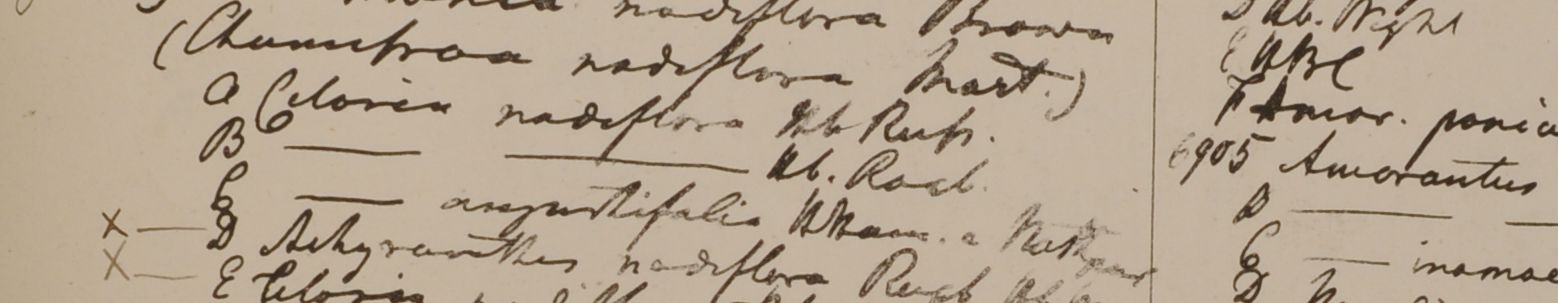 nodiflora Brown
(Chamissoa nodiflora Mart.)
A Celosia nodiflora Hb Rusp.
B —— —— Hb. Roxb.
C —— angustifolia HHam. a
X — D Achyranthes nodiflora Roxb
X — E Celosia
D Hb. Wight
E HBC
F Amar. panic
6905 Amarantus
B —— —
C —— inamoe
D